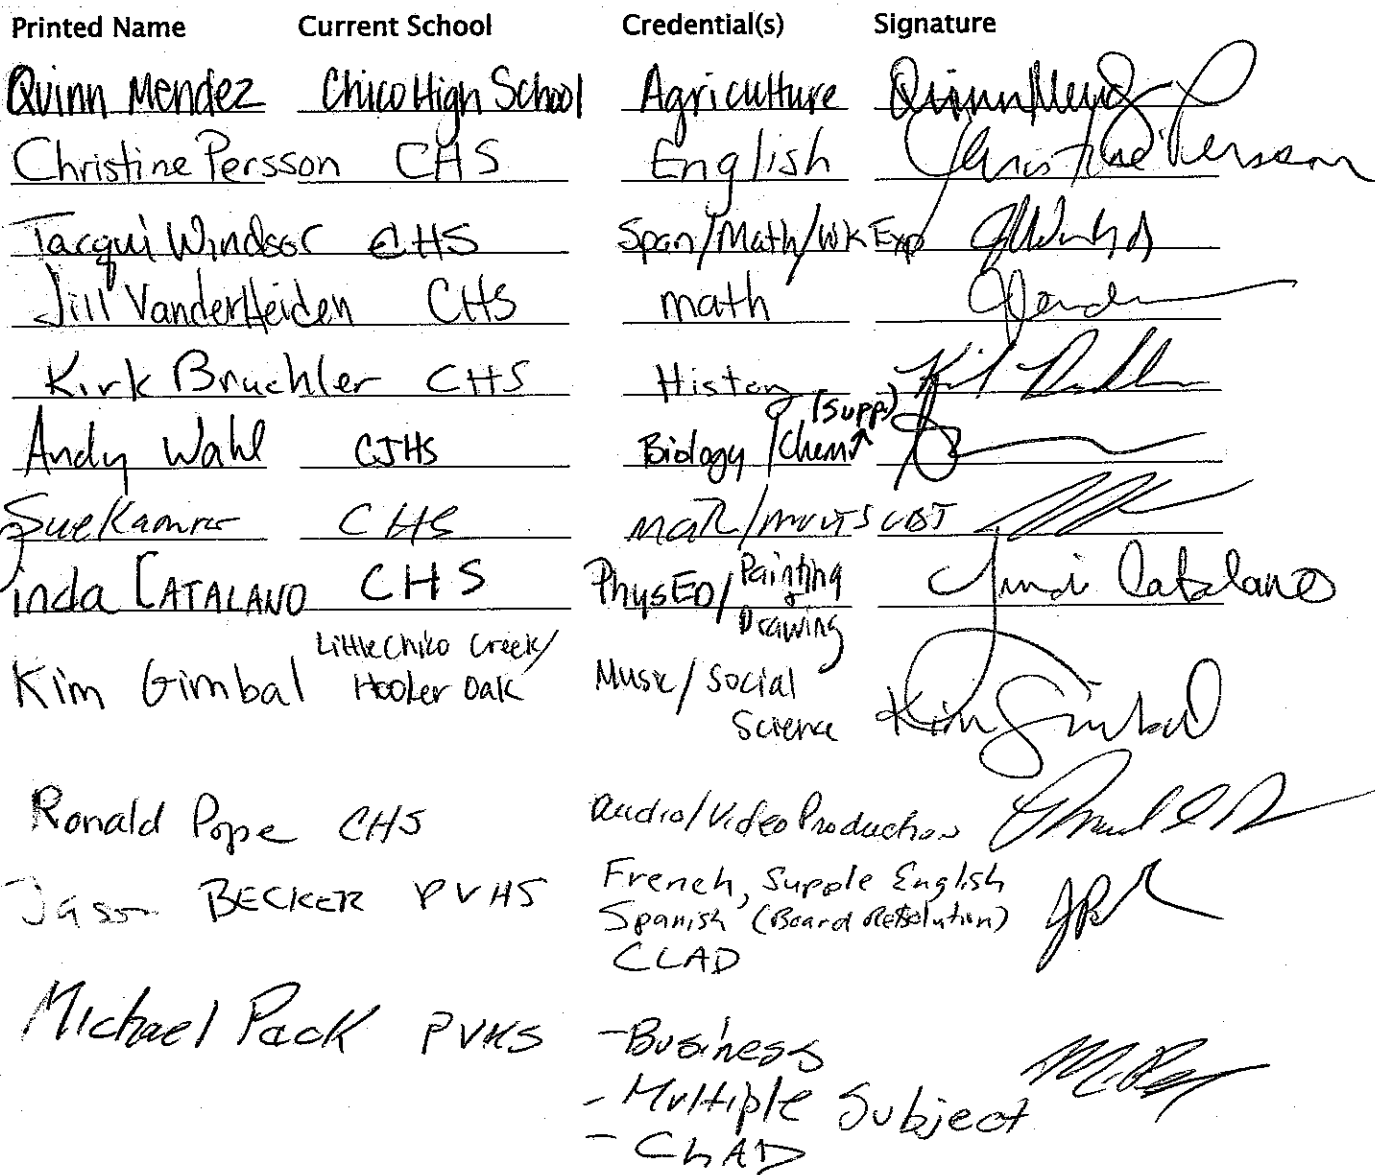 Printed Name Current School Credential(s) Signature
Quinn Mendez Chico High School Agriculture Quinn Mendez
Christine Persson CHS English Christine Persson
Jacqui Windsor CHS Span/Math/Wk Exp
Jill VanderHeiden CHS math
Kirk Bruchler CHS History
Andy Wahl CJHS Biology/Chem (Supp)
Sue CHS
inda CATALANO CHS PhysED/Painting & Drawing Catalano
Kim Gimbal Little Chico Creek/ Music/Social Kim Gimbal
Hooker Oak Science
Ronald Pope CHS Audio/Video Production
Jason BECKER PVHS French, Supple English
Spanish (Board Resolution)
CLAD
Michael Pack PVHS -Business
- Multiple Subject
- CLAD